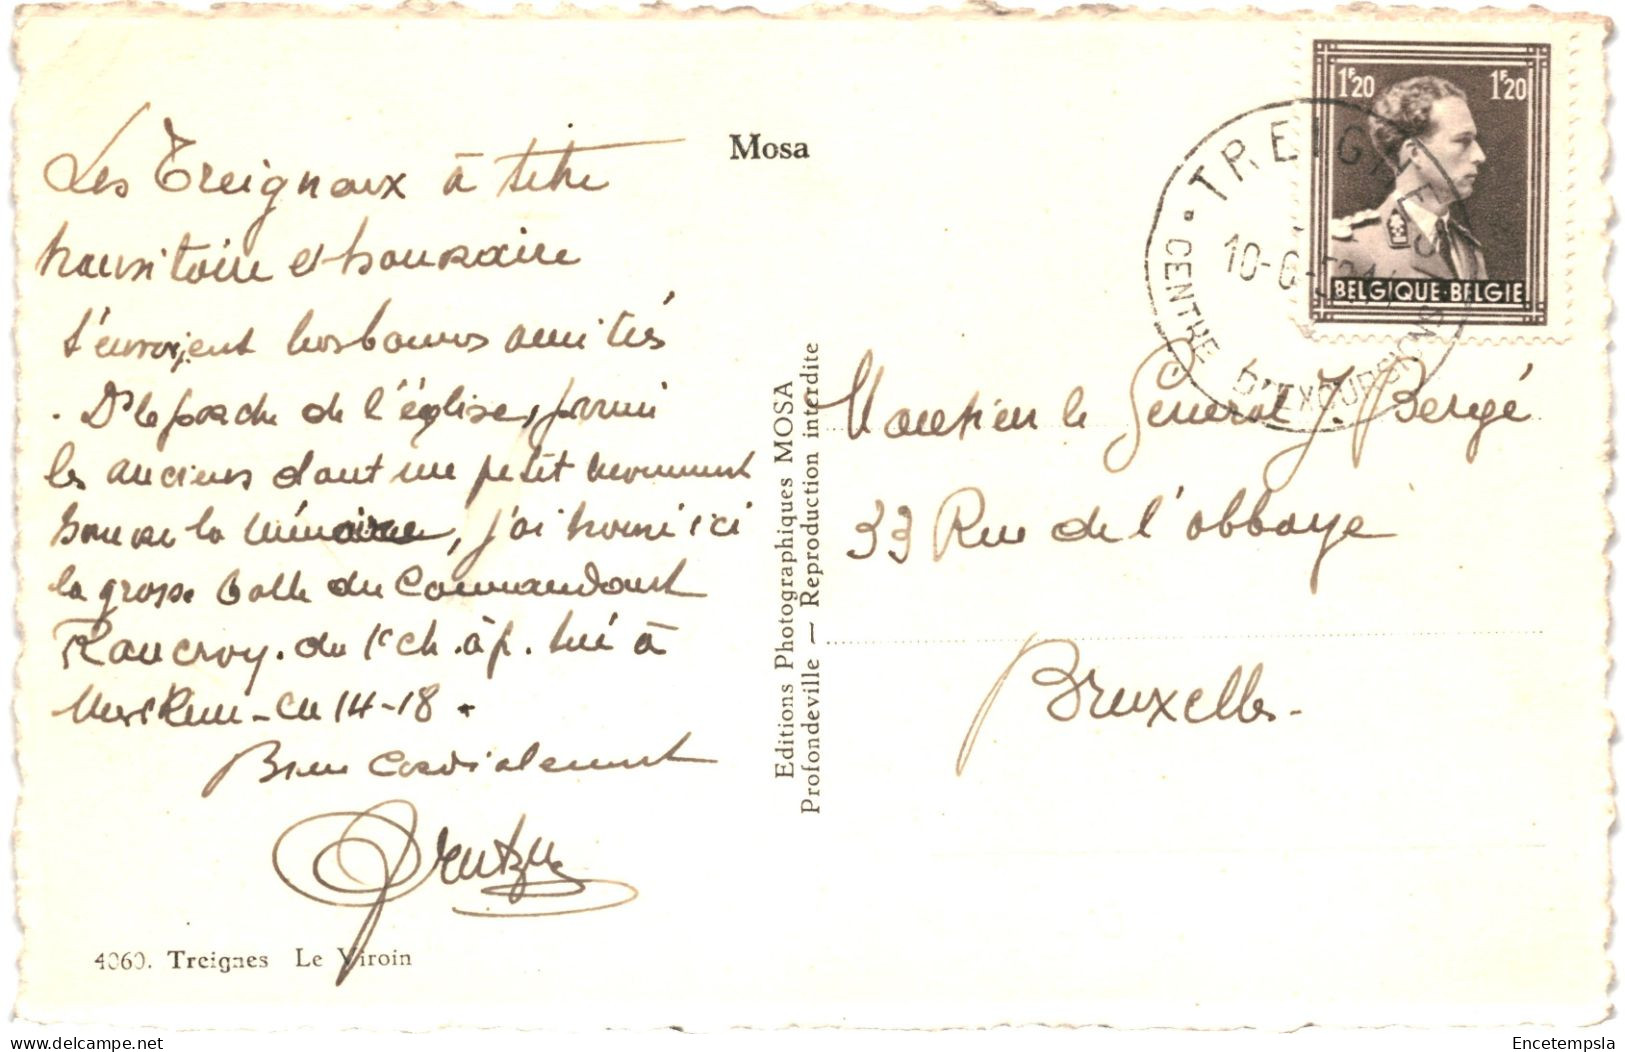 Les Treignoux à titre
transitoire et honoraire
t'envoyent nos bonnes amitiés
. Ds le porche de l'église, parmi
les anciens dont un petit monument
la mémoire, j'ai trouvé ici
la grosse balle du Commandant
Rancroy. du 1e ch. à p. tué à
en 14-18.
Bien cordialement
4060. Treignes Le Viroin
Mosa
Editions Photographiques MOSA
Profondeville — Reproduction interdite
1F20 1F20
BELGIQUE·BELGIE
TREIGNES
10-6-5
CENTRE D'EXCURSIONS
Monsieur le Général J. Bergé
33 Rue de l'abbaye
Bruxelles.
Encetempsla